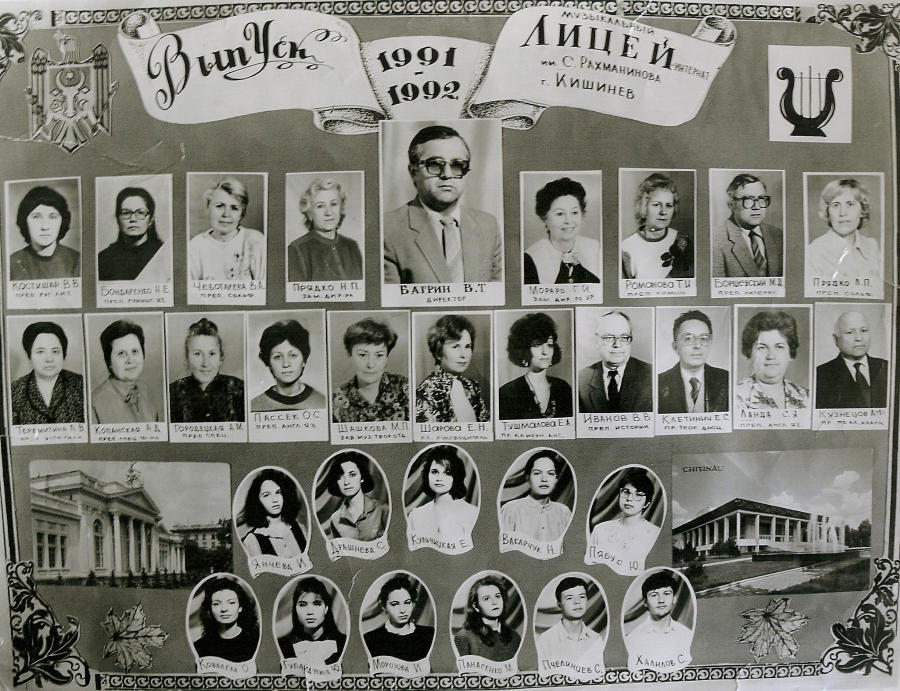 Выпуск
1991
-
1992
Музыкальный
Лицей
-интернат
им. С. Рахманинова
г. Кишинев
Костишар В.В.
преп. рус. лит.
Бондаренко Н.Е.
Чеботарева В.А.
преп. сольф.
Прядко Н.П.
зам. дир-ра
Багрин В.Т
директор
Морарь Г.И.
зам. дир. по
Романова Т.И
преп. химии
Боршевский М.Д.
преп. литерат.
Прядко Л.П.
преп. сольф.
Л.В
Копанская А.Д.
преп. спец. ф-но
Городецкая А.М.
преп. спец.
Пассек О.С
преп. англ. яз.
Шашкова М.П
Шарова Е.Н.
кл. руководитель
Тушмалова Е.А.
преп. камерн. анс.
Иванов В.В
преп. истории
Клетинич Е.С
пр. теор. дисц.
Ланда С.
преп. англ. яз.
Кузнецов А.Ф
CHIŞINĂU
Янчева И.
Драшнева С.
Кульчицкая Е.
Вакарчук Н.
Пябус Ю.
Ковалева О.
Морозова И.
Панасенко М.
Пчелинцев С.
Халилов С.